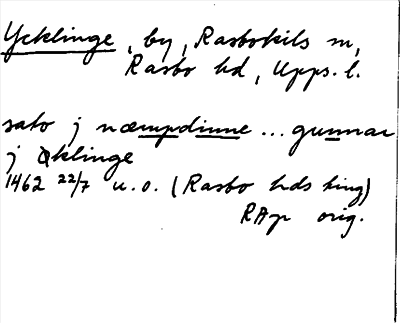 Ycklinge, by, Rasbokils sn,
Rasbo hd, Upps. l.
sato j næmpdinne ... gunnar
j Øklinge
1462 22/7 u.o. (Rasbo hds ting)
RAp orig.